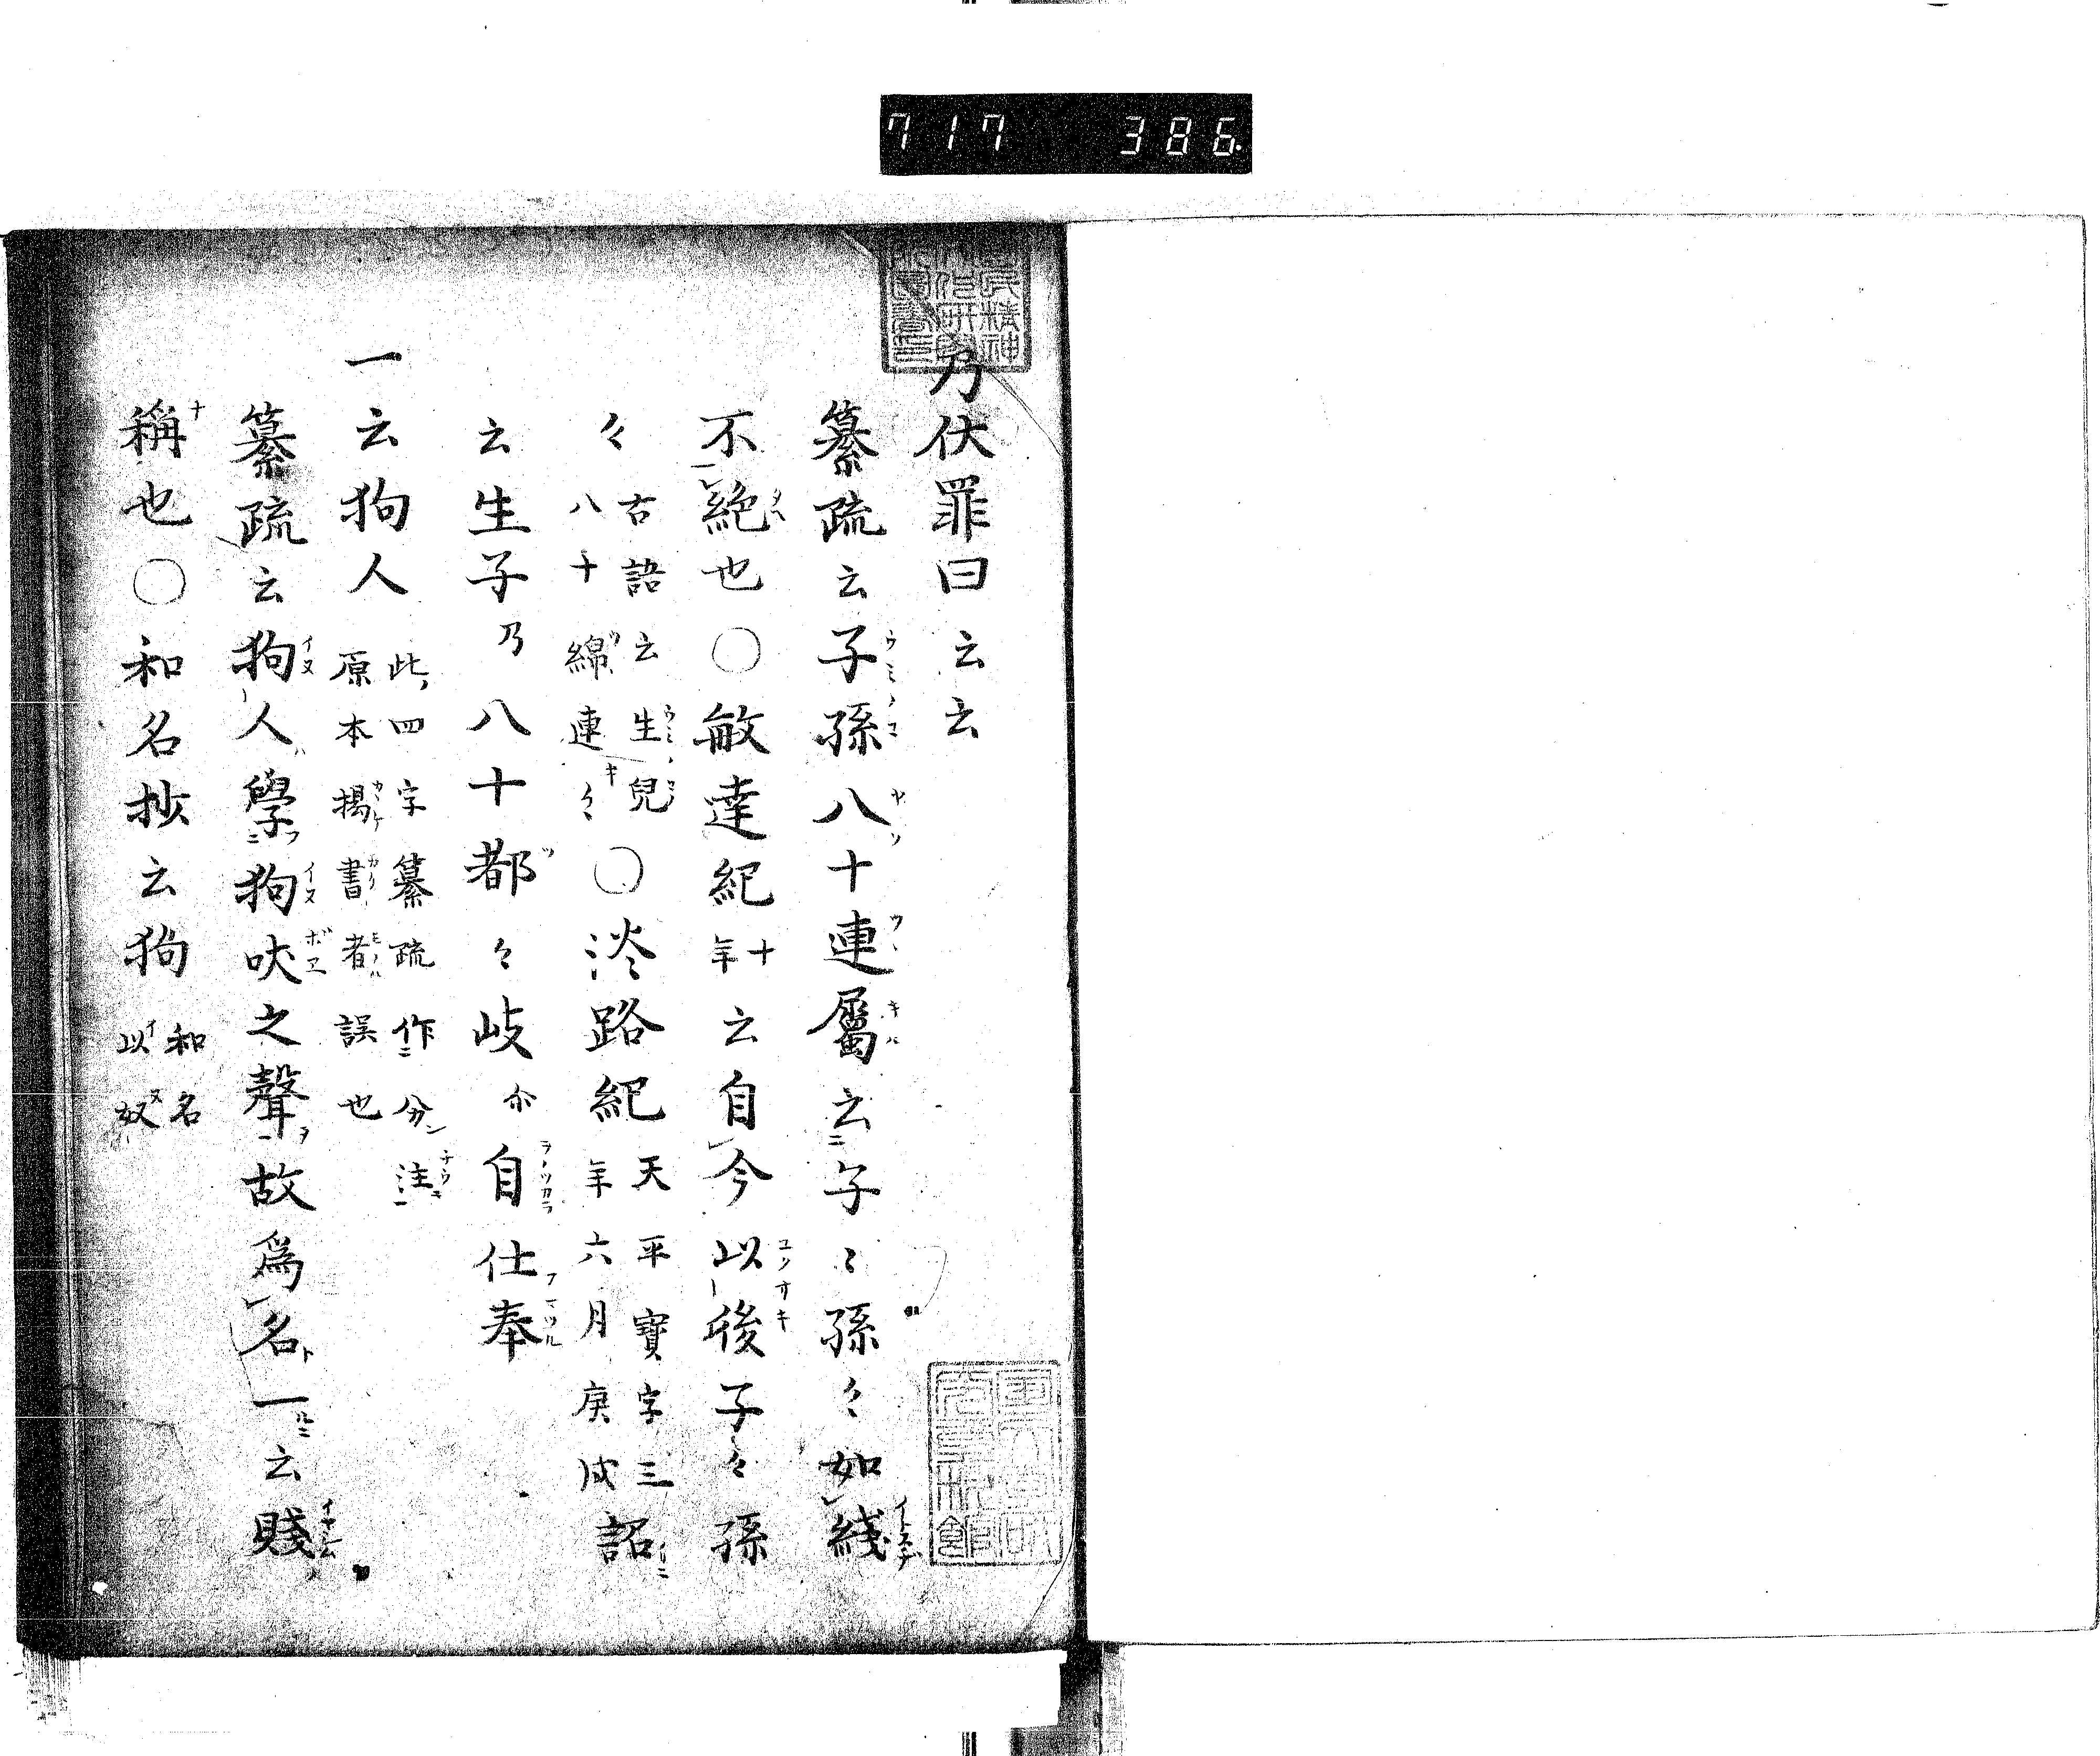 717 386
乃伏罪曰云云
纂疏云子孫八十連屬云子〻孫々如綫
不絶也〇敏達紀十年云自今以後子々孫
々古語云生兒八十綿連々〇淡路紀天平寶字三年六月庚戌詔
云生子乃八十都々岐尒自仕奉
一云狗人此四字纂疏作分注原本揚書者誤也
纂疏云狗人學狗吠之聲故為名一云賤
稱也〇和名抄云狗和名以奴